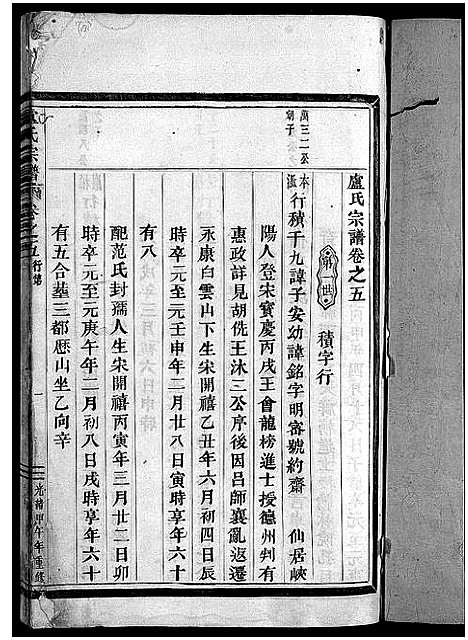 盧氏宗譜卷之五
第一世 積字行
萬三二公
幼子
本溫
行積千九諱子安幼諱銘字明審號約齋 仙居峽
陽人登宋寶慶丙戌王會龍榜進士授德州判有
惠政詳見胡洗王沐三公序後因呂師襄亂返遷
永康白雲山下生宋開禧乙丑年六月初四日辰
時卒元至元壬申年二月廿八日寅時享年六十
有八
配范氏封孺人生宋開禧丙寅年三月廿二日卯
時卒元至元庚午年二月初八日戌時享年六十
有五合塟三都厯山坐乙向辛
盧氏宗譜 卷之五 行第
一
光緒甲午年重修